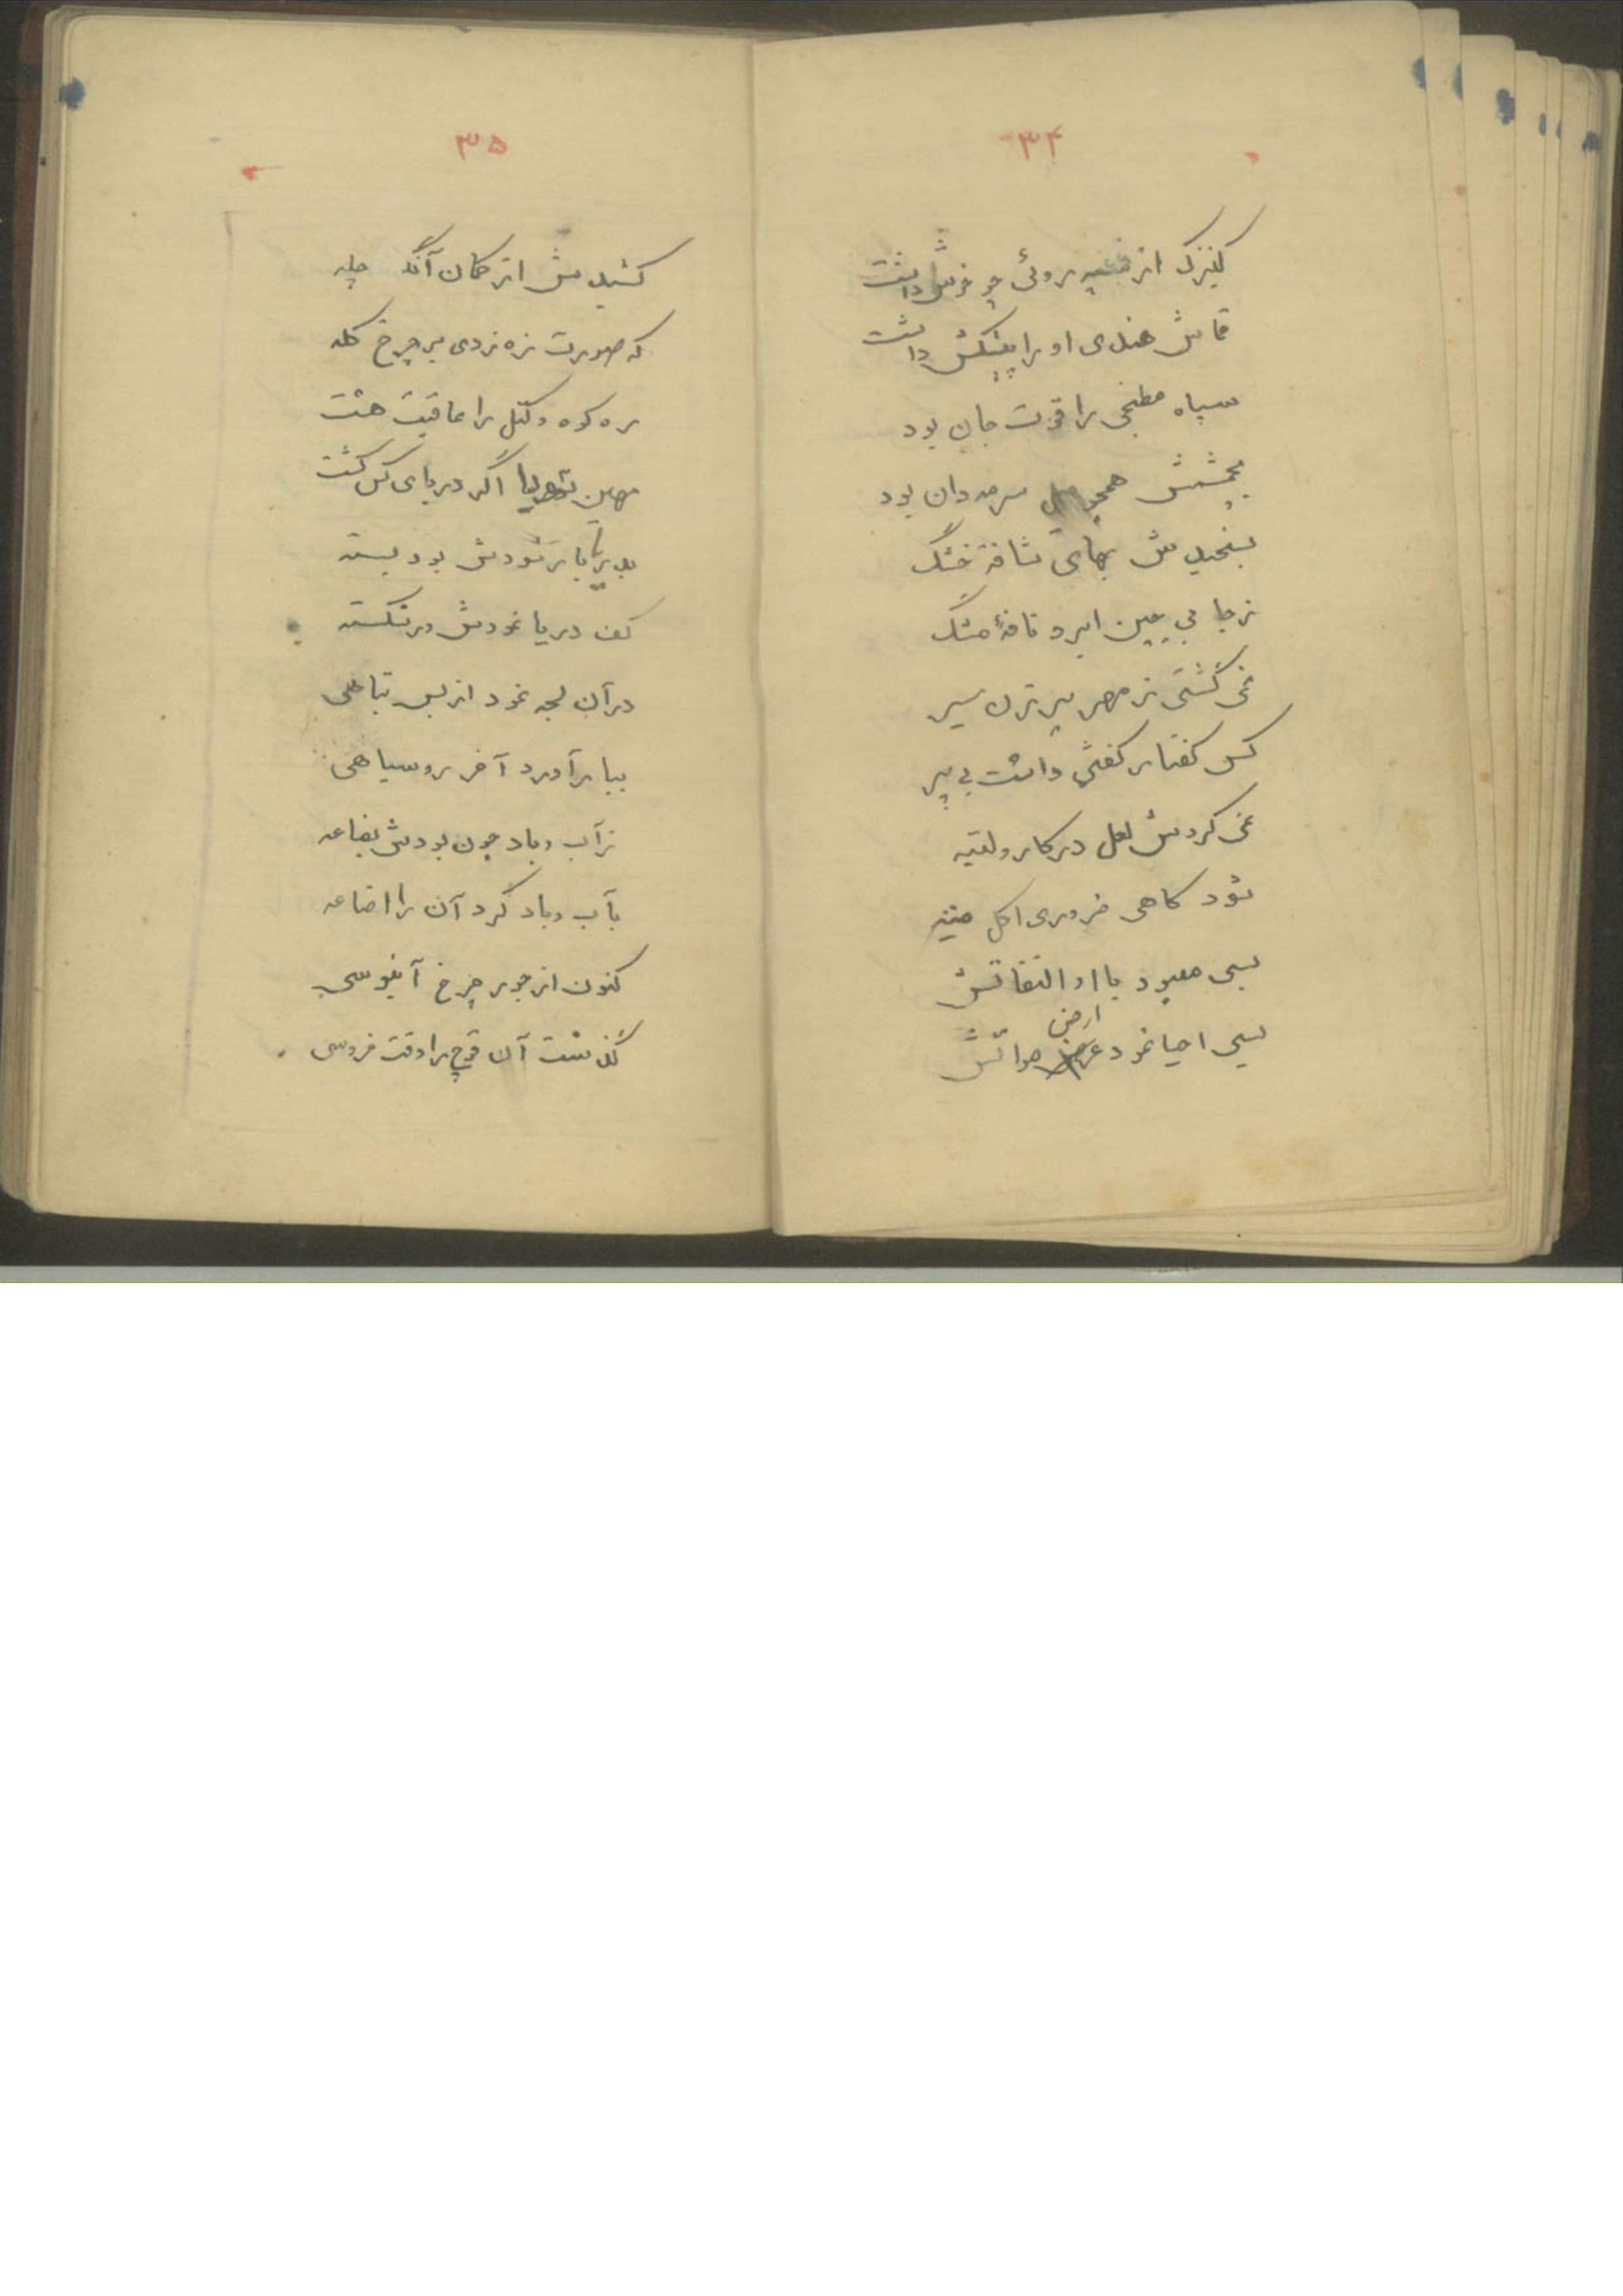 ۳۴
کنیزک از سیه روئی چو خوش داشت
قماش هندی او را پیشکش داشت
سیاه مطبخی را قوت جان بود
بچشمش همچو میل سرمه دان بود
بسنجیدش بهای شافهٔ خشک
ز جا بی چین ابرو نافهٔ مشک
نمی گشتی ز مهر پیر زن سیر
کس کفتار کفتی داشت بی پیر
نمی کردش لعل در کار ولقیه
شود کاهی ضروری اکل میته
بسی معبود با او التفاتش
بسی احیا نمود ارض مواتش
۳۵
کشیدش از کمان آنگه چله
که صورت زه زدی بر چرخ کله
ره کوه و کتل را عاقبت هشت
مهین اگر دریای کس گشت
بدریا بار شودش بود بسته
کف دریا نمودش در شکسته
در آن لجه نمود از بس تباهی
ببار آورد آخر روسیاهی
ز آب و باد چون بودش بضاعه
بآب و باد کرد آن را اضاعه
کنون از جور چرخ آبنوسی
گذشت آن قوچ را وقت خروسی